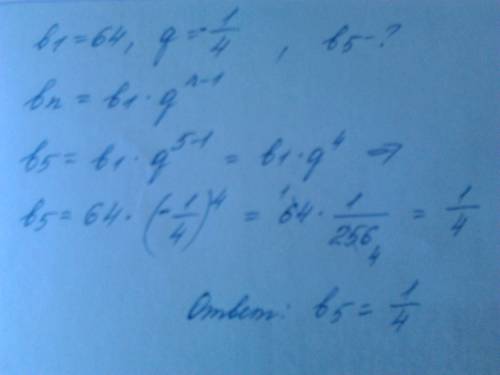 b1 = 64, q = -1/4, b5 - ?
bn = b1 · q^n-1
b5 = b1 · q^5-1 = b1 · q^4 ⇒
b5 = 64 · (-1/4)^4 = 64 1 · 1/256 4 = 1/4
Ответ: b5 = 1/4